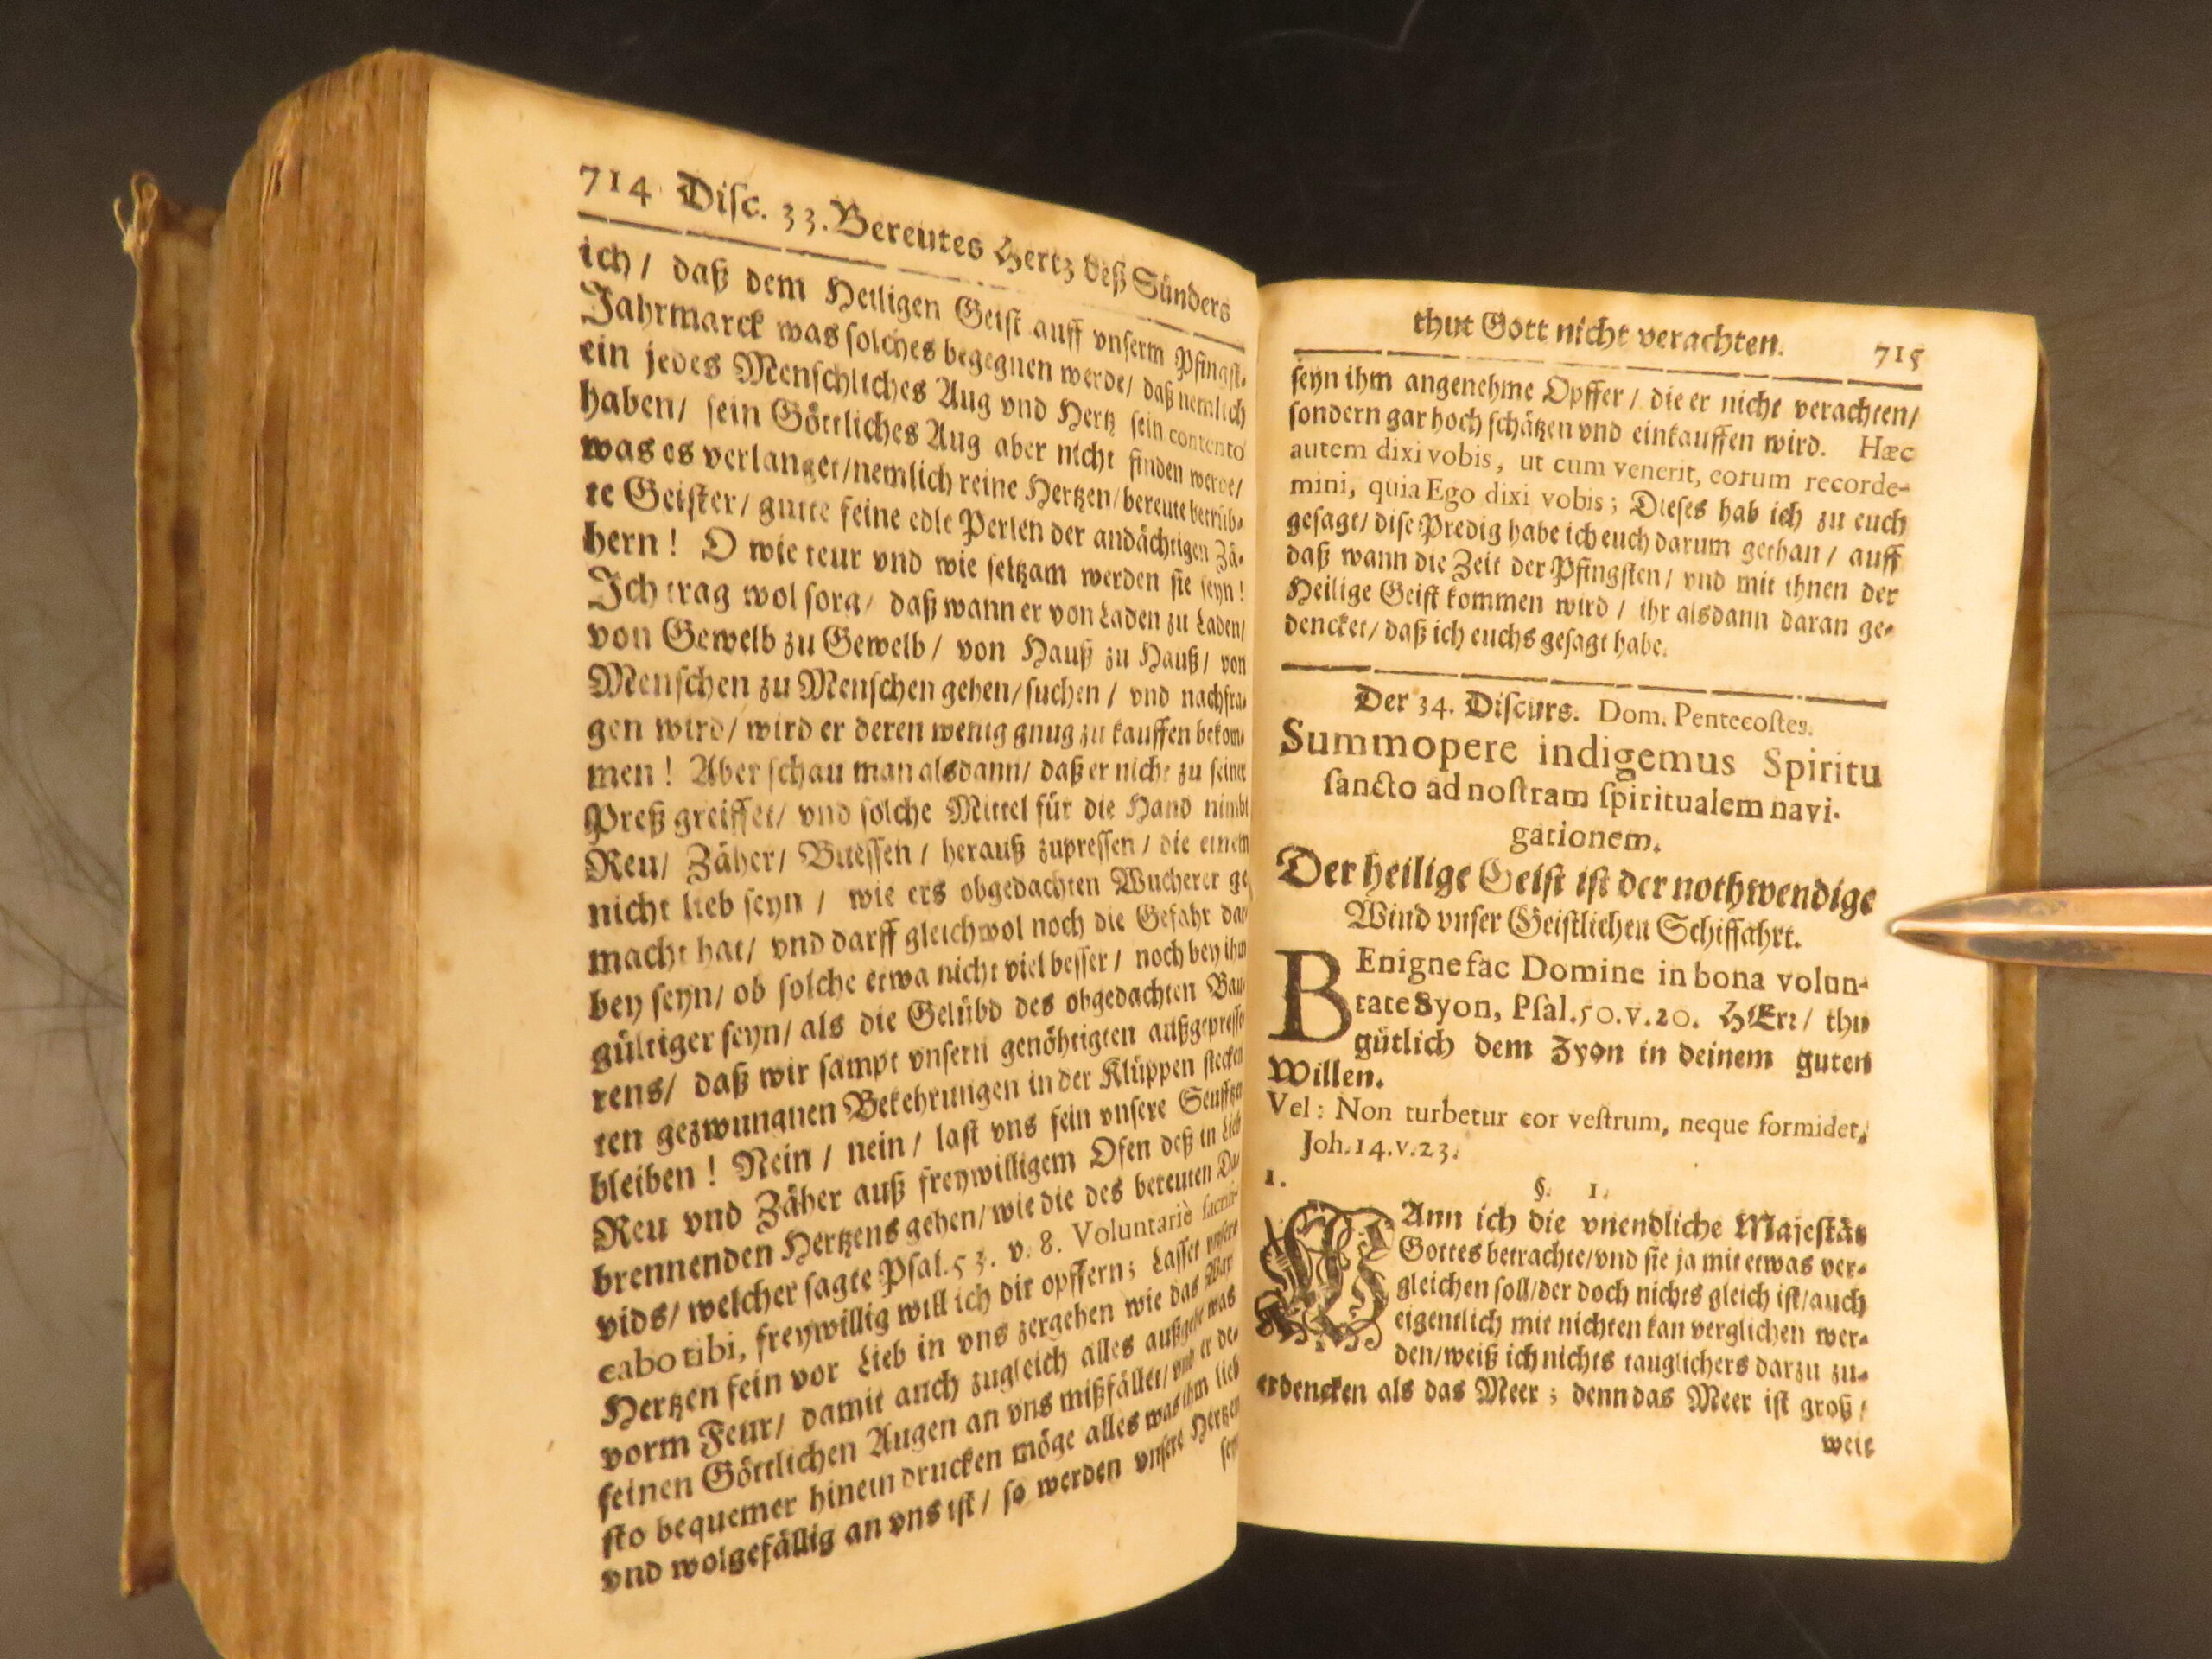 714 Disc. 33. Bereutes Hertz deß Sünders
ich / daß dem Heiligen Geist auff vnserm Pfingst-
Jahrmarck was solches begegnen werde / daß nemlich
ein jedes Menschliches Aug vnd Hertz sein contento
haben / sein Göttliches Aug aber nicht finden werde /
was es verlanget / nemlich reine Hertzen / bereute betrüb-
te Geister / gute feine edle Perlen der andächtigen Zä-
hern ! O wie teur vnd wie seltzam werden sie seyn !
Ich trag wol sorg / daß wann er von Laden zu Laden /
von Gewelb zu Gewelb / von Hauß zu Hauß / von
Menschen zu Menschen gehen / suchen / vnd nachfra-
gen wird / wird er deren wenig gnug zu kauffen bekom-
men ! Aber schau man alsdann / daß er nicht zu seiner
Preß greiffet / vnd solche Mittel für die Hand nimbt
Reu / Zäher / Buessen / herauß zupressen / die einem
nicht lieb seyn / wie ers obgedachten Wucherer ge
macht hat / vnd darff gleichwol noch die Gefahr dar
bey seyn / ob solche etwa nicht viel besser / noch bey ihm
gültiger seyn / als die Gelübd des obgedachten Bau
rens / daß wir sampt vnsern genöhtigten außgepress
ten gezwungnen Bekehrungen in der Klüppen stecken
bleiben ! Nein / nein / last vns fein vnsere Seufftzer
Reu vnd Zäher auß freywilligem Ofen deß in Lieb
brennenden Hertzens gehen / wie die des bereuten Da
vids / welcher sagte Psal. 53. v. 8. Voluntariè sacrifi-
cabo tibi, freywillig will ich dir opffern; Lasset vnsere
Hertzen fein vor Lieb in vns zergehen wie das Wax
vorm Feur / damit auch zugleich alles außgehe was
seinen Göttlichen Augen an vns mißfället / vnd er de-
sto bequemer hinein drucken möge alles was ihm lieb
vnd wolgefällig an vns ist / so werden vnsere Hertzen
seyn
thut Gott nicht verachten. 715
seyn ihm angenehme Opffer / die er nicht verachten /
sondern gar hoch schätzen vnd einkauffen wird. Hæc
autem dixi vobis, ut cum venerit, eorum recorde-
mini, quia Ego dixi vobis; Dieses hab ich zu euch
gesagt / dise Predig habe ich euch darum gethan / auff
daß wann die Zeit der Pfingsten / vnd mit ihnen der
Heilige Geist kommen wird / ihr alsdann daran ge-
dencket / daß ich euchs gesagt habe.
Der 34. Discurs. Dom. Pentecostes.
Summopere indigemus Spiritu
sancto ad nostram spiritualem navi-
gationem.
Der heilige Geist ist der nothwendige
Wind vnser Geistlichen Schiffahrt.
BEnigne fac Domine in bona volun-
tate Syon, Psal. 50. v. 20. HErr / thu
gütlich dem Zyon in deinem guten
Willen.
Vel: Non turbetur cor vestrum, neque formidet,
Joh. 14. v. 23.
1. §. 1.
WAnn ich die vnendliche Majestät
Gottes betrachte / vnd sie ja mit etwas ver-
gleichen soll / der doch nichts gleich ist / auch
eigentlich mit nichten kan verglichen wer-
den / weiß ich nichts tauglichers darzu zu-
erdencken als das Meer ; denn das Meer ist groß /
weit